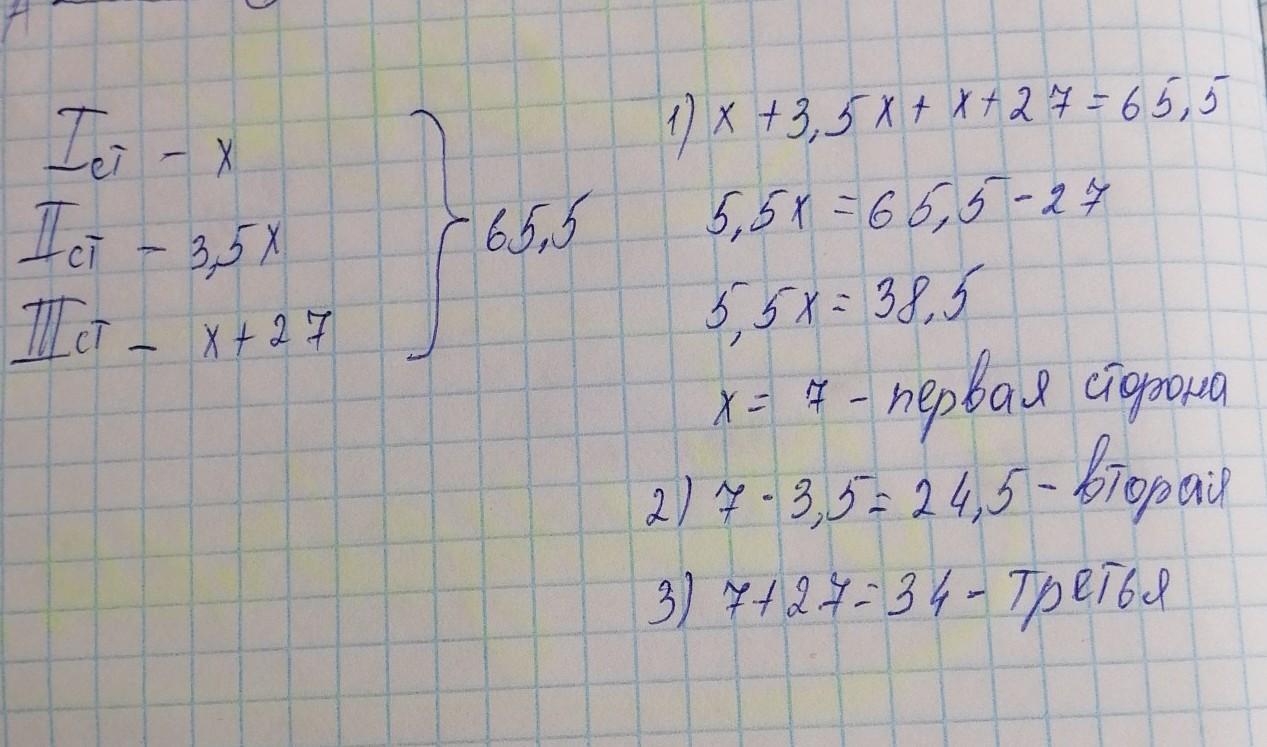 I ст - x
II ст - 3,5x
III ст - x+27
65,5
1) x+3,5x+x+27=65,5
5,5x=65,5-27
5,5x=38,5
x=7 - первая сторона
2) 7·3,5=24,5 - вторая
3) 7+27=34 - третья